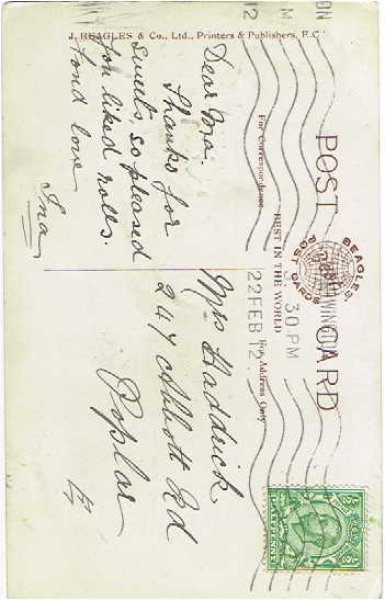 J. BEAGLES & Co., Ltd., Printers & Publishers, E.C.
POST CARD
BEAGLES
POST CARDS
BEST IN THE WORLD
For Correspondence
For Address Only
30 PM
22 FEB 12
Dear Ma.
Thanks for
sweets, so pleased
you liked rolls.
Fond love
Ina
Mrs Haddrick
247 Abbott Rd
Poplar
E
HALFPENNY